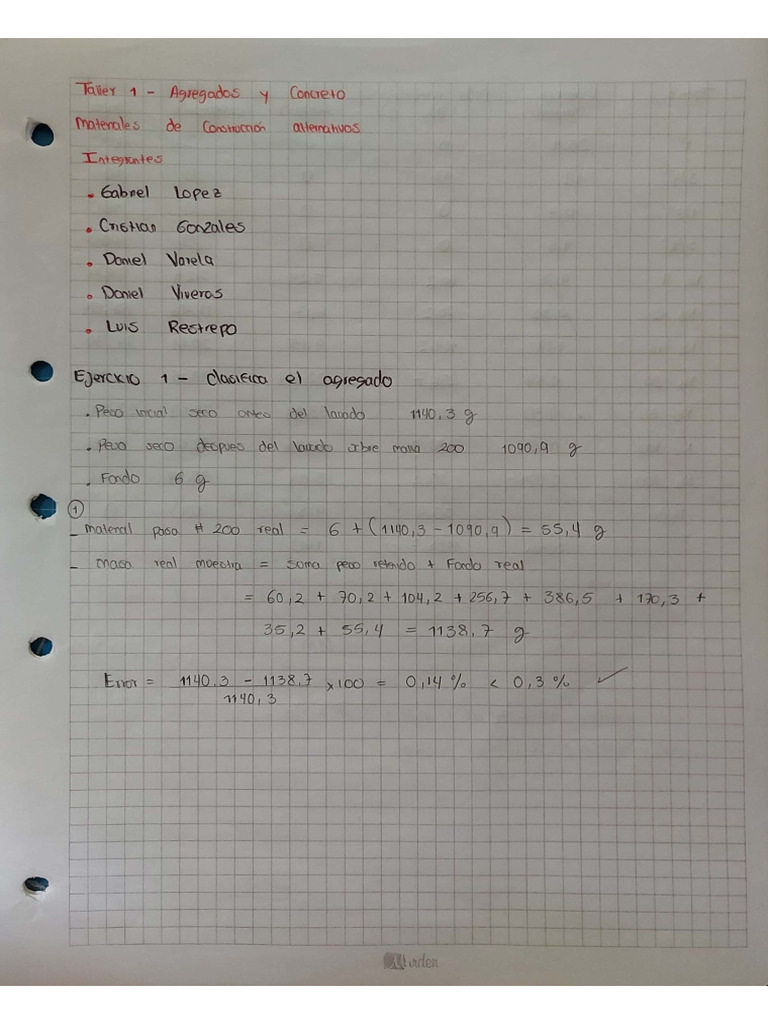 Taller 1 - Agregados y Concreto
Materiales de Construcción alternativos
Integrantes
• Gabriel Lopez
• Cristian Gonzales
• Daniel Varela
• Daniel Viveros
• Luis Restrepo
Ejercicio 1 - clasifica el agregado
• Peso inicial seco antes del lavado 1140,3 g
• Peso seco despues del lavado sobre malla 200 1090,9 g
• Fondo 6 g
①
- material pasa # 200 real = 6 + (1140,3 - 1090,9) = 55,4 g
- masa real muestra = suma peso retenido + Fondo real
= 60,2 + 70,2 + 104,2 + 256,7 + 386,5 + 170,3 +
35,2 + 55,4 = 1138,7 g
Error = 1140,3 - 1138,7 × 100 = 0,14 % < 0,3 % ✓
1140,3